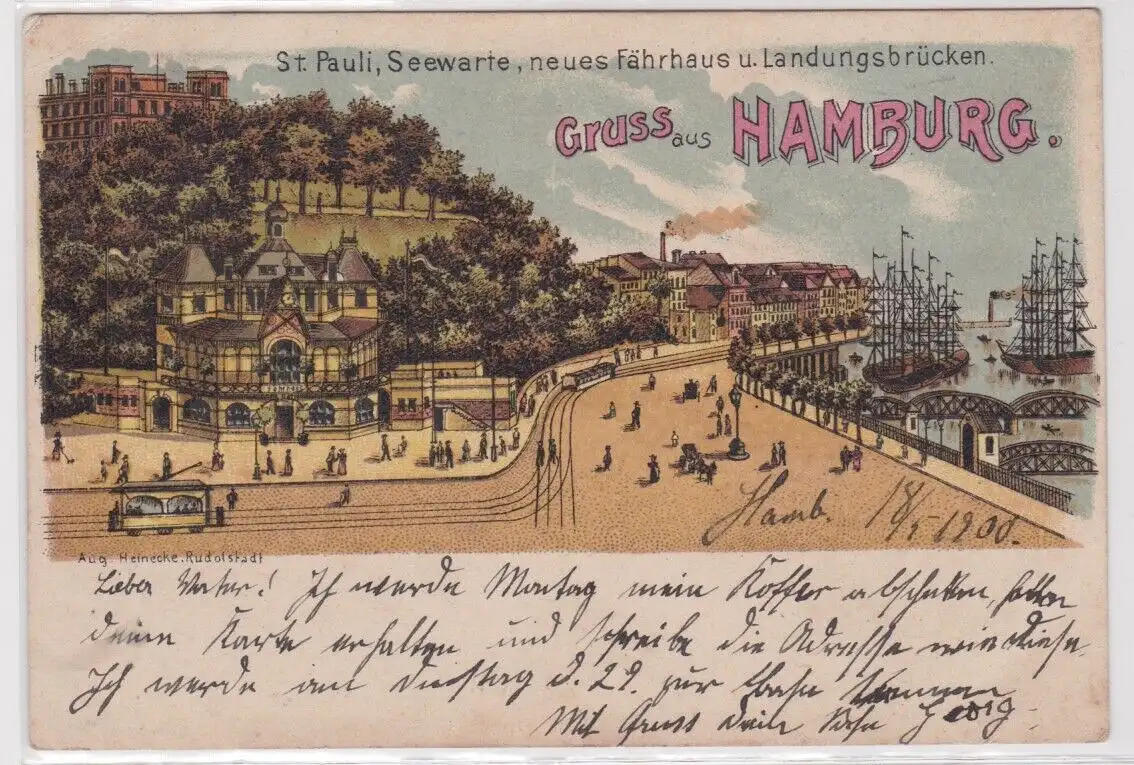 St. Pauli, Seewarte, neues Fährhaus u. Landungsbrücken.
Gruss aus HAMBURG.
Hamb. 18/5 1900.
Aug. Heinecke, Rudolstadt
Lieber Vater! Ich werde Montag mein Koffer abschicken, habe
deine Karte erhalten und schreibe die Adresse wie diese.
Ich werde am Dienstag d. 29. zur Bahn kommen
Mit Gruss dein Sohn